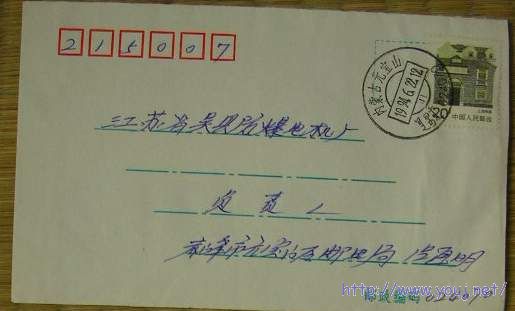 215007
内蒙古元宝山
1994.6.22.12
20 中国人民邮政
江苏省吴县防爆电机厂
负责人
赤峰市元宝山区邮电局
邮政编码
http://www.youj.net/